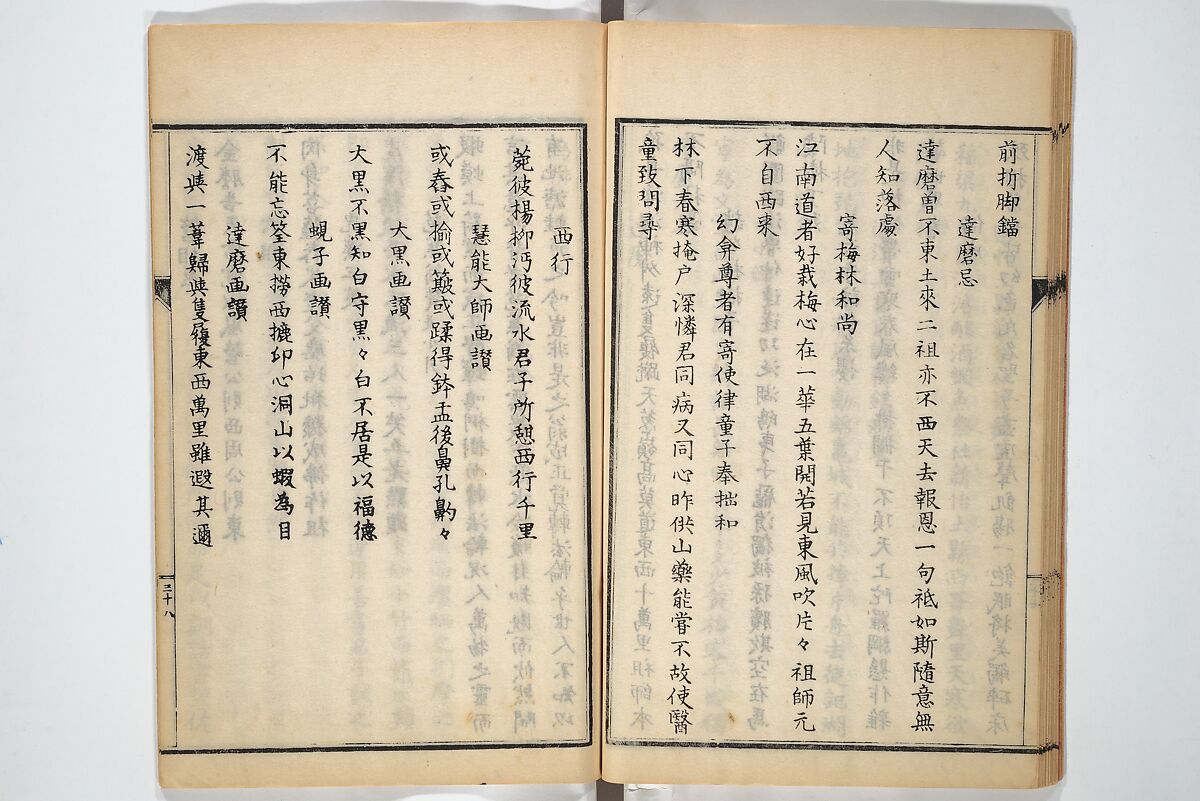 前折脚鐺
達磨忌
達磨曽不東土來二祖亦不西天去報恩一句祗如斯隨意無
人知落處
寄梅林和尚
江南道者好栽梅心在一華五葉開若見東風吹片々祖師元
不自西來
幻弁尊者有寄使律童子奉拙和
林下春寒掩戶深憐君同病又同心昨供山藥能嘗不故使醫
童致問尋
西行
菀彼揚柳沔彼流水君子所憩西行千里
慧能大師画讃
或舂或揄或簸或蹂得鉢盂後鼻孔齁々
大黒画讃
大黒不黒知白守黒々白不居是以福德
蜆子画讃
不能忘筌東撈西摝印心洞山以蝦為目
達磨画讃
渡與一葦歸與隻履東西萬里雖遐其邇
三十八